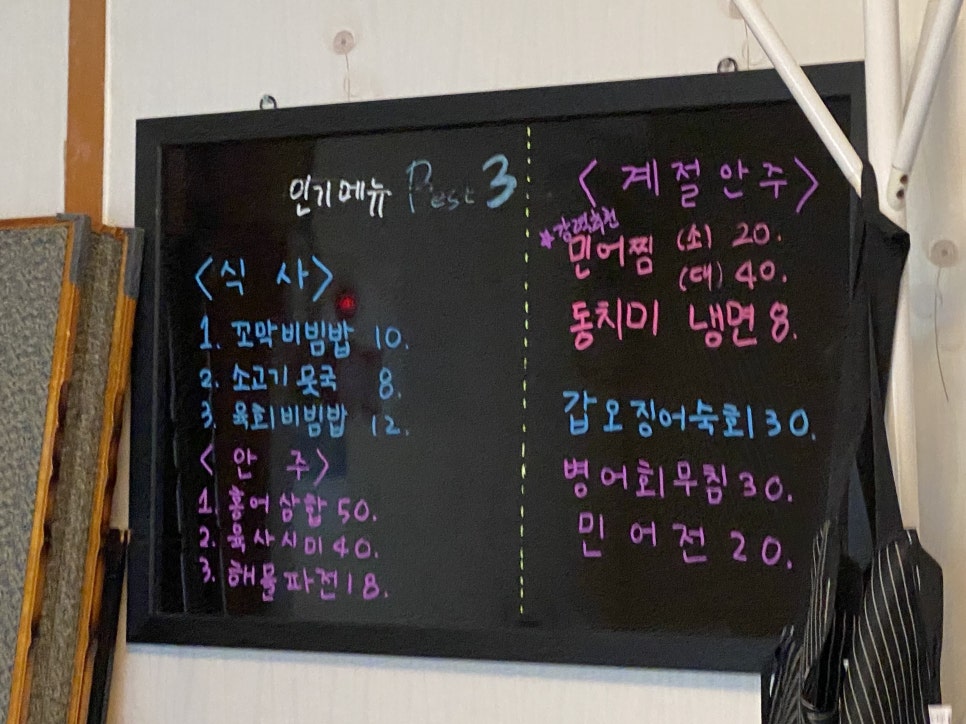 인기메뉴 Best 3
<식 사>
1. 꼬막비빔밥 10.
2. 소고기 뭇국 8.
3. 육회비빔밥 12.
<안 주>
1. 홍어삼합 50.
2. 육사시미 40.
3. 해물파전 18.
<계절안주>
*강력추천
민어찜 (소) 20.
(대) 40.
동치미 냉면 8.
갑오징어숙회 30.
병어회무침 30.
민어전 20.